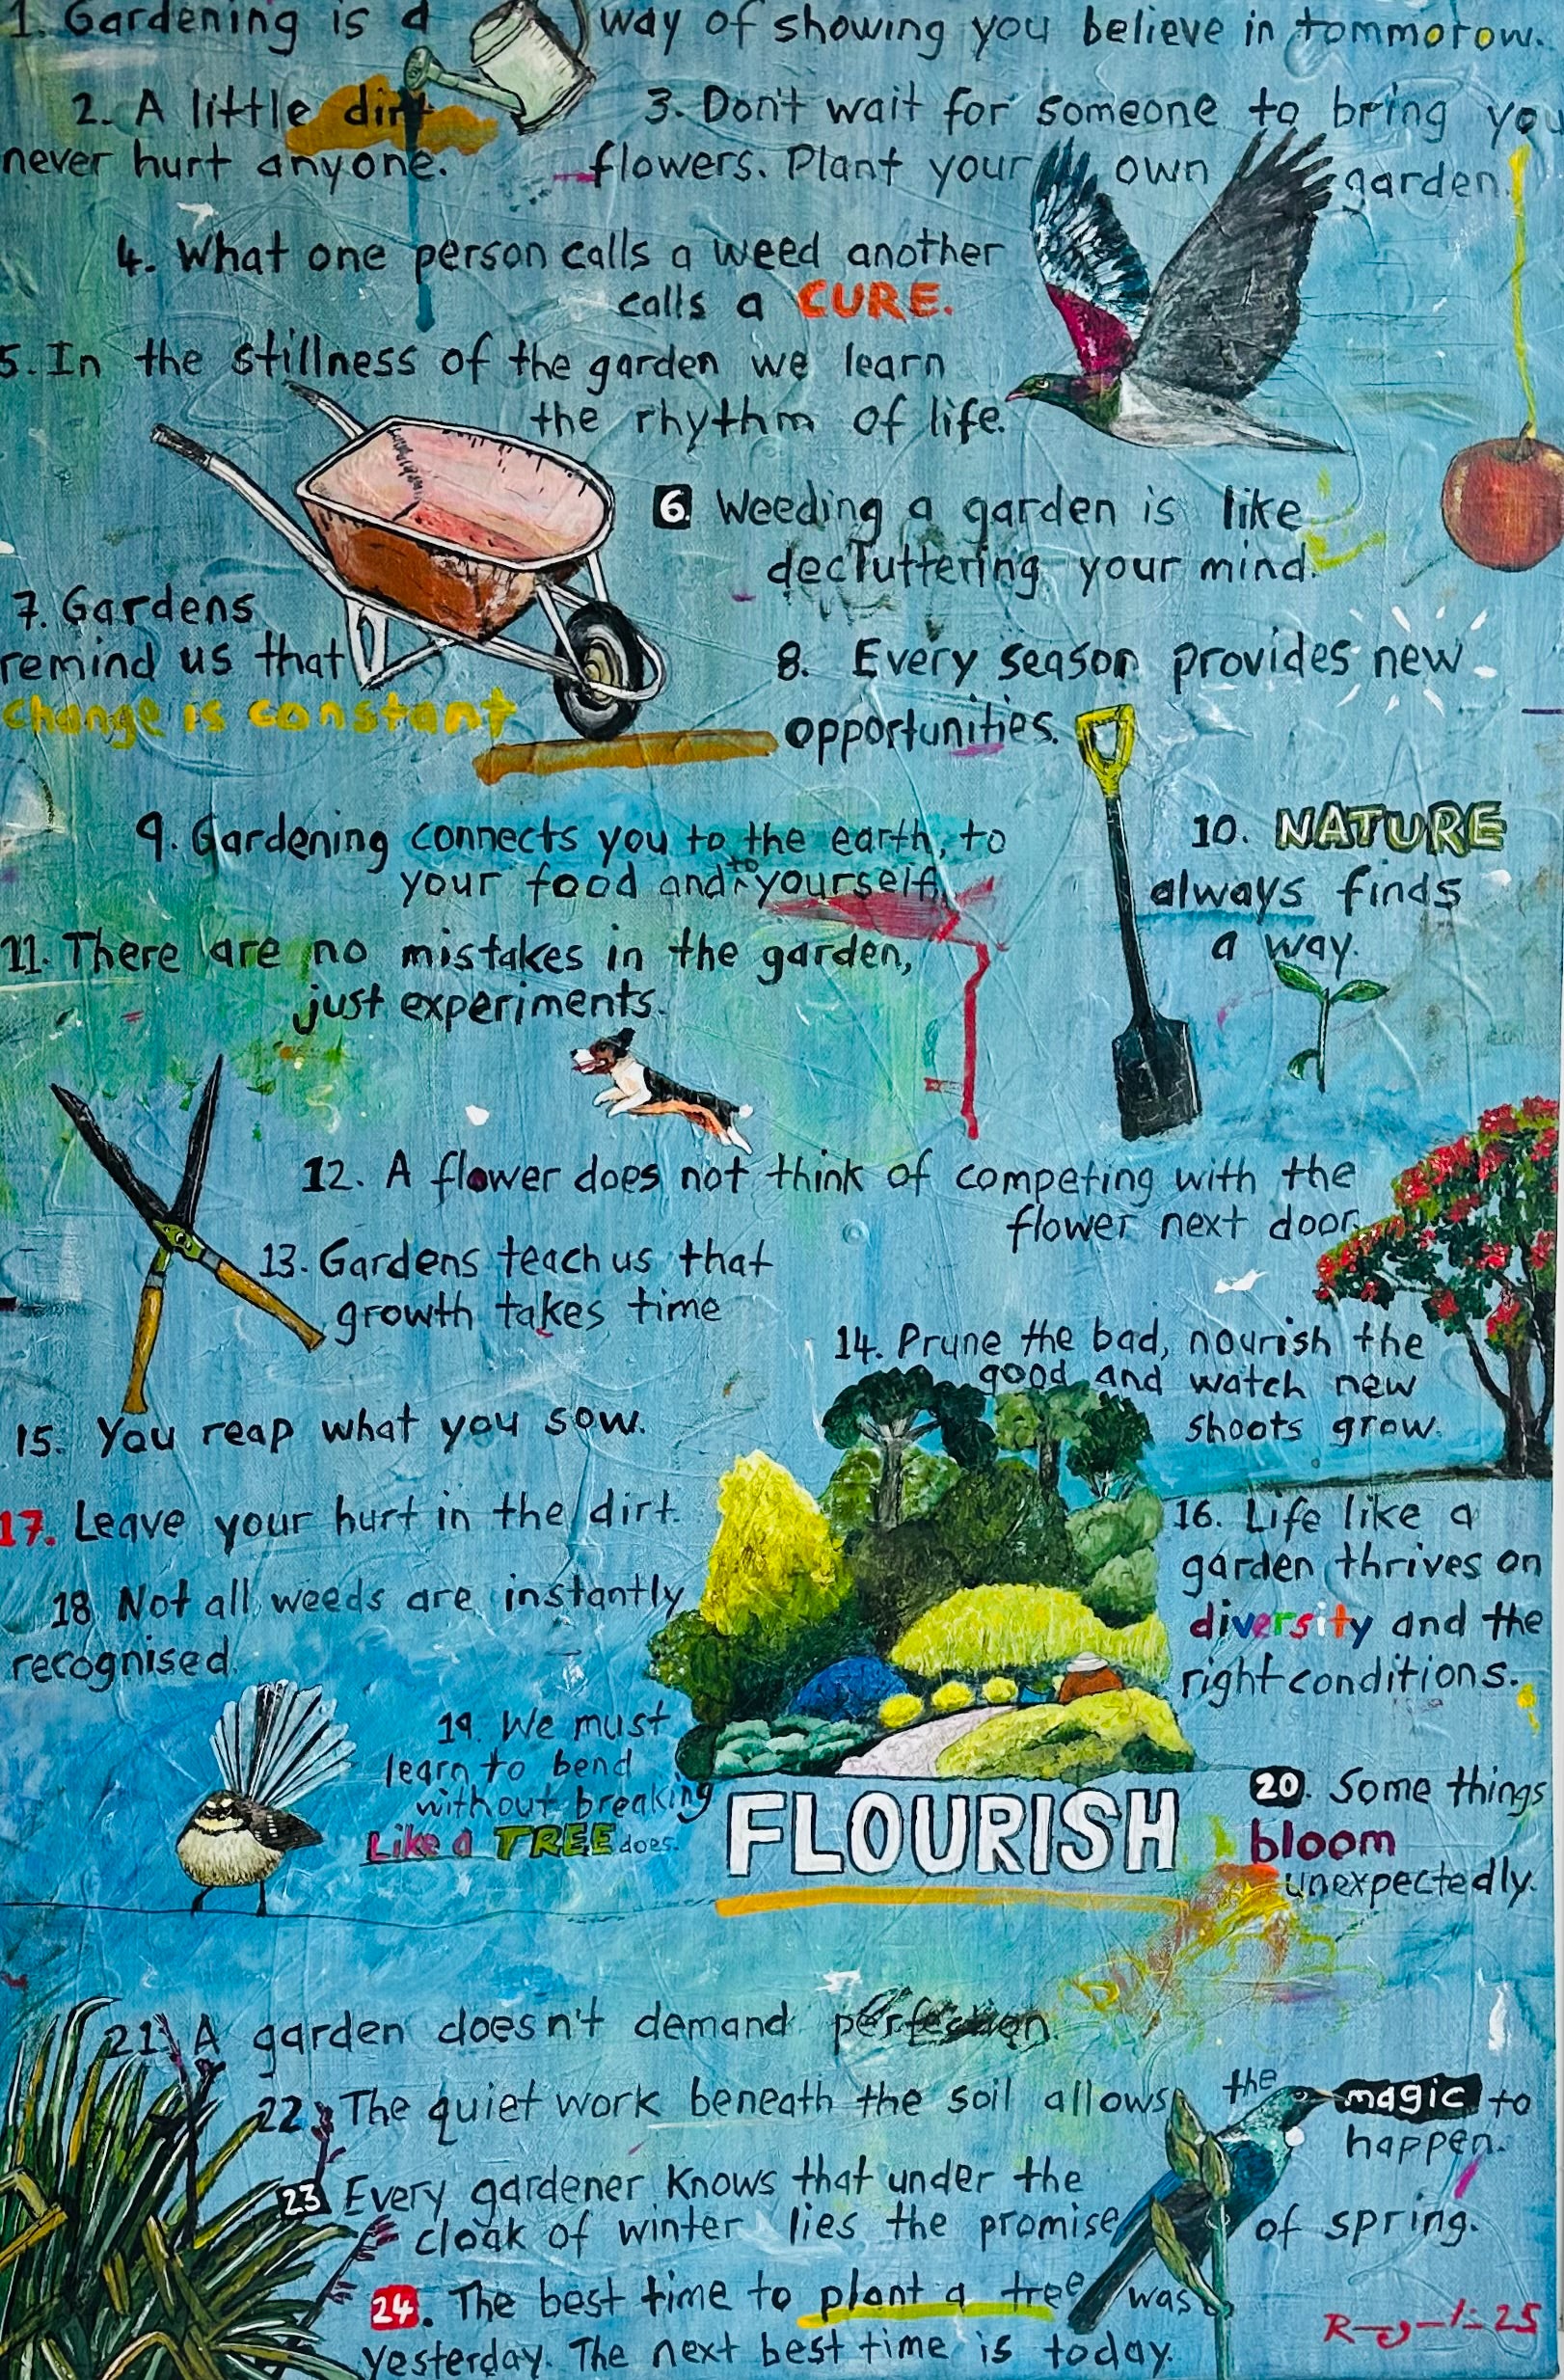 1. Gardening is a way of showing you believe in tommorow.
2. A little dirt
never hurt anyone.
3. Don't wait for someone to bring you
flowers. Plant your own garden.
4. What one person calls a weed another
calls a CURE.
5. In the stillness of the garden we learn
the rhythm of life.
6. Weeding a garden is like
decluttering your mind.
7. Gardens
remind us that
change is constant
8. Every season provides new
opportunities.
9. Gardening connects you to the earth, to
your food and to yourself.
10. NATURE
always finds
a way.
11. There are no mistakes in the garden,
just experiments.
12. A flower does not think of competing with the
flower next door.
13. Gardens teach us that
growth takes time
14. Prune the bad, nourish the
good and watch new
shoots grow.
15. You reap what you sow.
17. Leave your hurt in the dirt.
16. Life like a
garden thrives on
diversity and the
right conditions.
18 Not all weeds are instantly
recognised.
19. We must
learn to bend
without breaking
Like a TREE does.
FLOURISH
20. Some things
bloom
unexpectedly.
21. A garden doesn't demand perfection.
22. The quiet work beneath the soil allows the magic to
happen.
23 Every gardener knows that under the
cloak of winter lies the promise of spring.
24. The best time to plant a tree was
yesterday. The next best time is today.
25